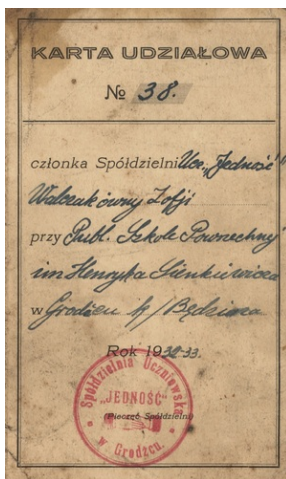 KARTA UDZIAŁOWA
№ 38.
członka Spółdzielni Ucz. „Jedność”
Walczakówny Zofji
przy Publ. Szkole Powszechnej
im Henryka Sienkiewicza
w Grodźcu k/Będzina
Rok 1932-33.
Spółdzielnia Uczniowska
„JEDNOŚĆ”
(Pieczęć Spółdzielni)
w Grodźcu.